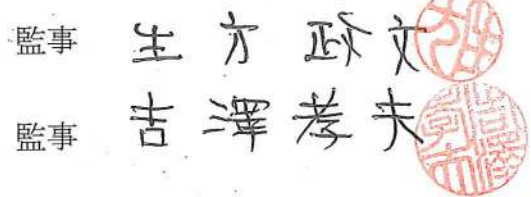 監事 生方政文
監事 吉澤孝夫